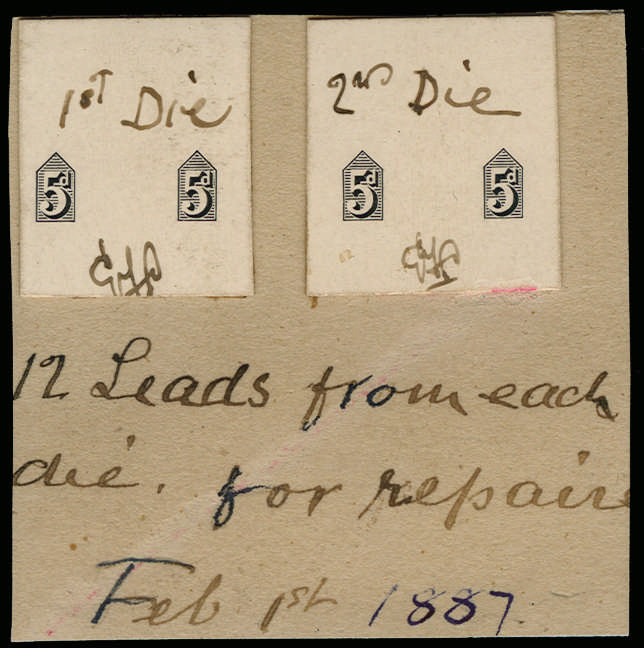 1st Die
5d 5d
2nd Die
5d 5d
12 Leads from each
die. for repaire
Feb 1st 1887.